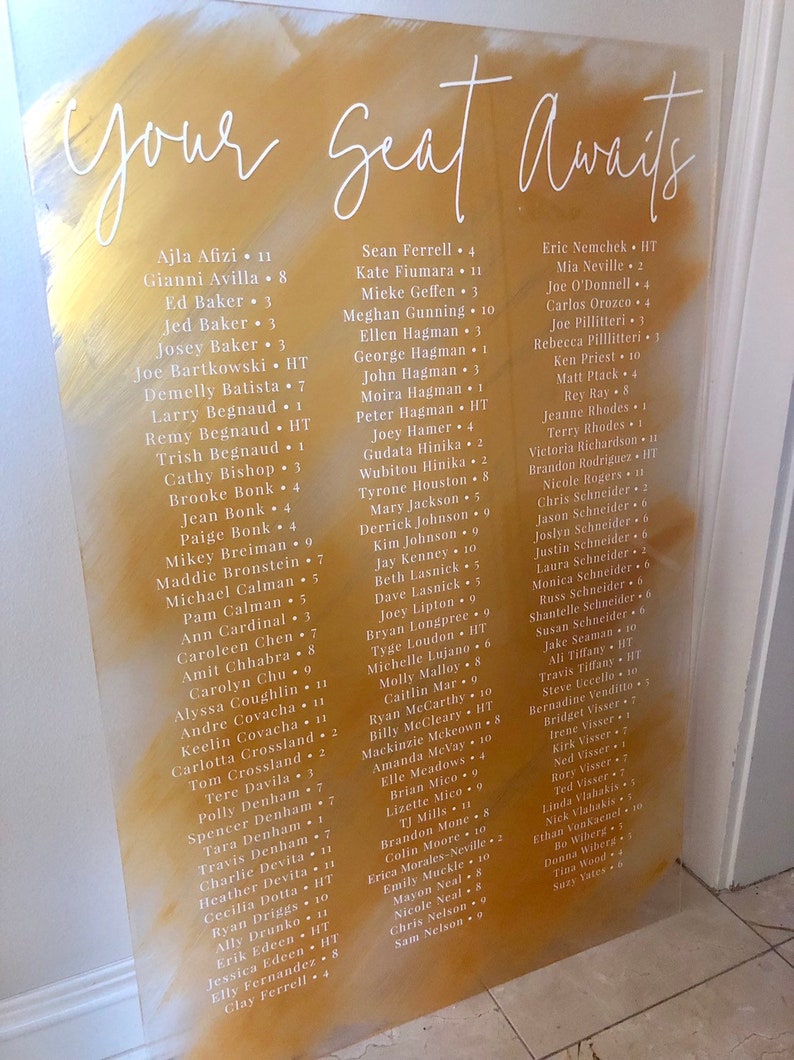 Your Seat Awaits
Ajla Afizi • 11
Gianni Avilla • 8
Ed Baker • 3
Jed Baker • 3
Josey Baker • 3
Joe Bartkowski • HT
Demelly Batista • 7
Larry Begnaud • 1
Remy Begnaud • HT
Trish Begnaud • 1
Cathy Bishop • 3
Brooke Bonk • 4
Jean Bonk • 4
Paige Bonk • 4
Mikey Breiman • 9
Maddie Bronstein • 7
Michael Calman • 5
Pam Calman • 5
Ann Cardinal • 3
Caroleen Chen • 7
Amit Chhabra • 8
Carolyn Chu • 9
Alyssa Coughlin • 11
Andre Covacha • 11
Keelin Covacha • 11
Carlotta Crossland • 2
Tom Crossland • 2
Tere Davila • 3
Polly Denham • 7
Spencer Denham • 7
Tara Denham • 1
Travis Denham • 7
Charlie Devita • 11
Heather Devita • 11
Cecilia Dotta • HT
Ryan Driggs • 10
Ally Drunko • 11
Erik Edeen • HT
Jessica Edeen • HT
Elly Fernandez • 8
Clay Ferrell • 4
Sean Ferrell • 4
Kate Fiumara • 11
Mieke Geffen • 3
Meghan Gunning • 10
Ellen Hagman • 3
George Hagman • 1
John Hagman • 3
Moira Hagman • 1
Peter Hagman • HT
Joey Hamer • 4
Gudata Hinika • 2
Wubitou Hinika • 2
Tyrone Houston • 8
Mary Jackson • 5
Derrick Johnson • 9
Kim Johnson • 9
Jay Kenney • 10
Beth Lasnick • 5
Dave Lasnick • 5
Joey Lipton • 9
Bryan Longpree • 9
Tyge Loudon • HT
Michelle Lujano • 6
Molly Malloy • 8
Caitlin Mar • 9
Ryan McCarthy • 10
Billy McCleary • HT
Mackinzie Mckeown • 8
Amanda McVay • 10
Elle Meadows • 4
Brian Mico • 9
Lizette Mico • 9
TJ Mills • 11
Brandon Mone • 8
Colin Moore • 10
Erica Morales-Neville • 2
Emily Muckle • 10
Mayon Neal • 8
Nicole Neal • 8
Chris Nelson • 9
Sam Nelson • 9
Eric Nemchek • HT
Mia Neville • 2
Joe O'Donnell • 4
Carlos Orozco • 4
Joe Pillitteri • 3
Rebecca Pilllitteri • 3
Ken Priest • 10
Matt Ptack • 4
Rey Ray • 8
Jeanne Rhodes • 1
Terry Rhodes • 1
Victoria Richardson • 11
Brandon Rodriguez • HT
Nicole Rogers • 11
Chris Schneider • 2
Jason Schneider • 6
Joslyn Schneider • 6
Justin Schneider • 6
Laura Schneider • 2
Monica Schneider • 6
Russ Schneider • 6
Shantelle Schneider • 6
Susan Schneider • 6
Jake Seaman • 10
Ali Tiffany • HT
Travis Tiffany • HT
Steve Uccello • 10
Bernadine Venditto • 5
Bridget Visser • 7
Irene Visser • 1
Kirk Visser • 7
Ned Visser • 1
Rory Visser • 7
Ted Visser • 7
Linda Vlahakis • 5
Nick Vlahakis • 5
Ethan VonKaenel • 10
Bo Wiberg • 5
Donna Wiberg • 3
Tina Wood • 4
Suzy Yates • 6